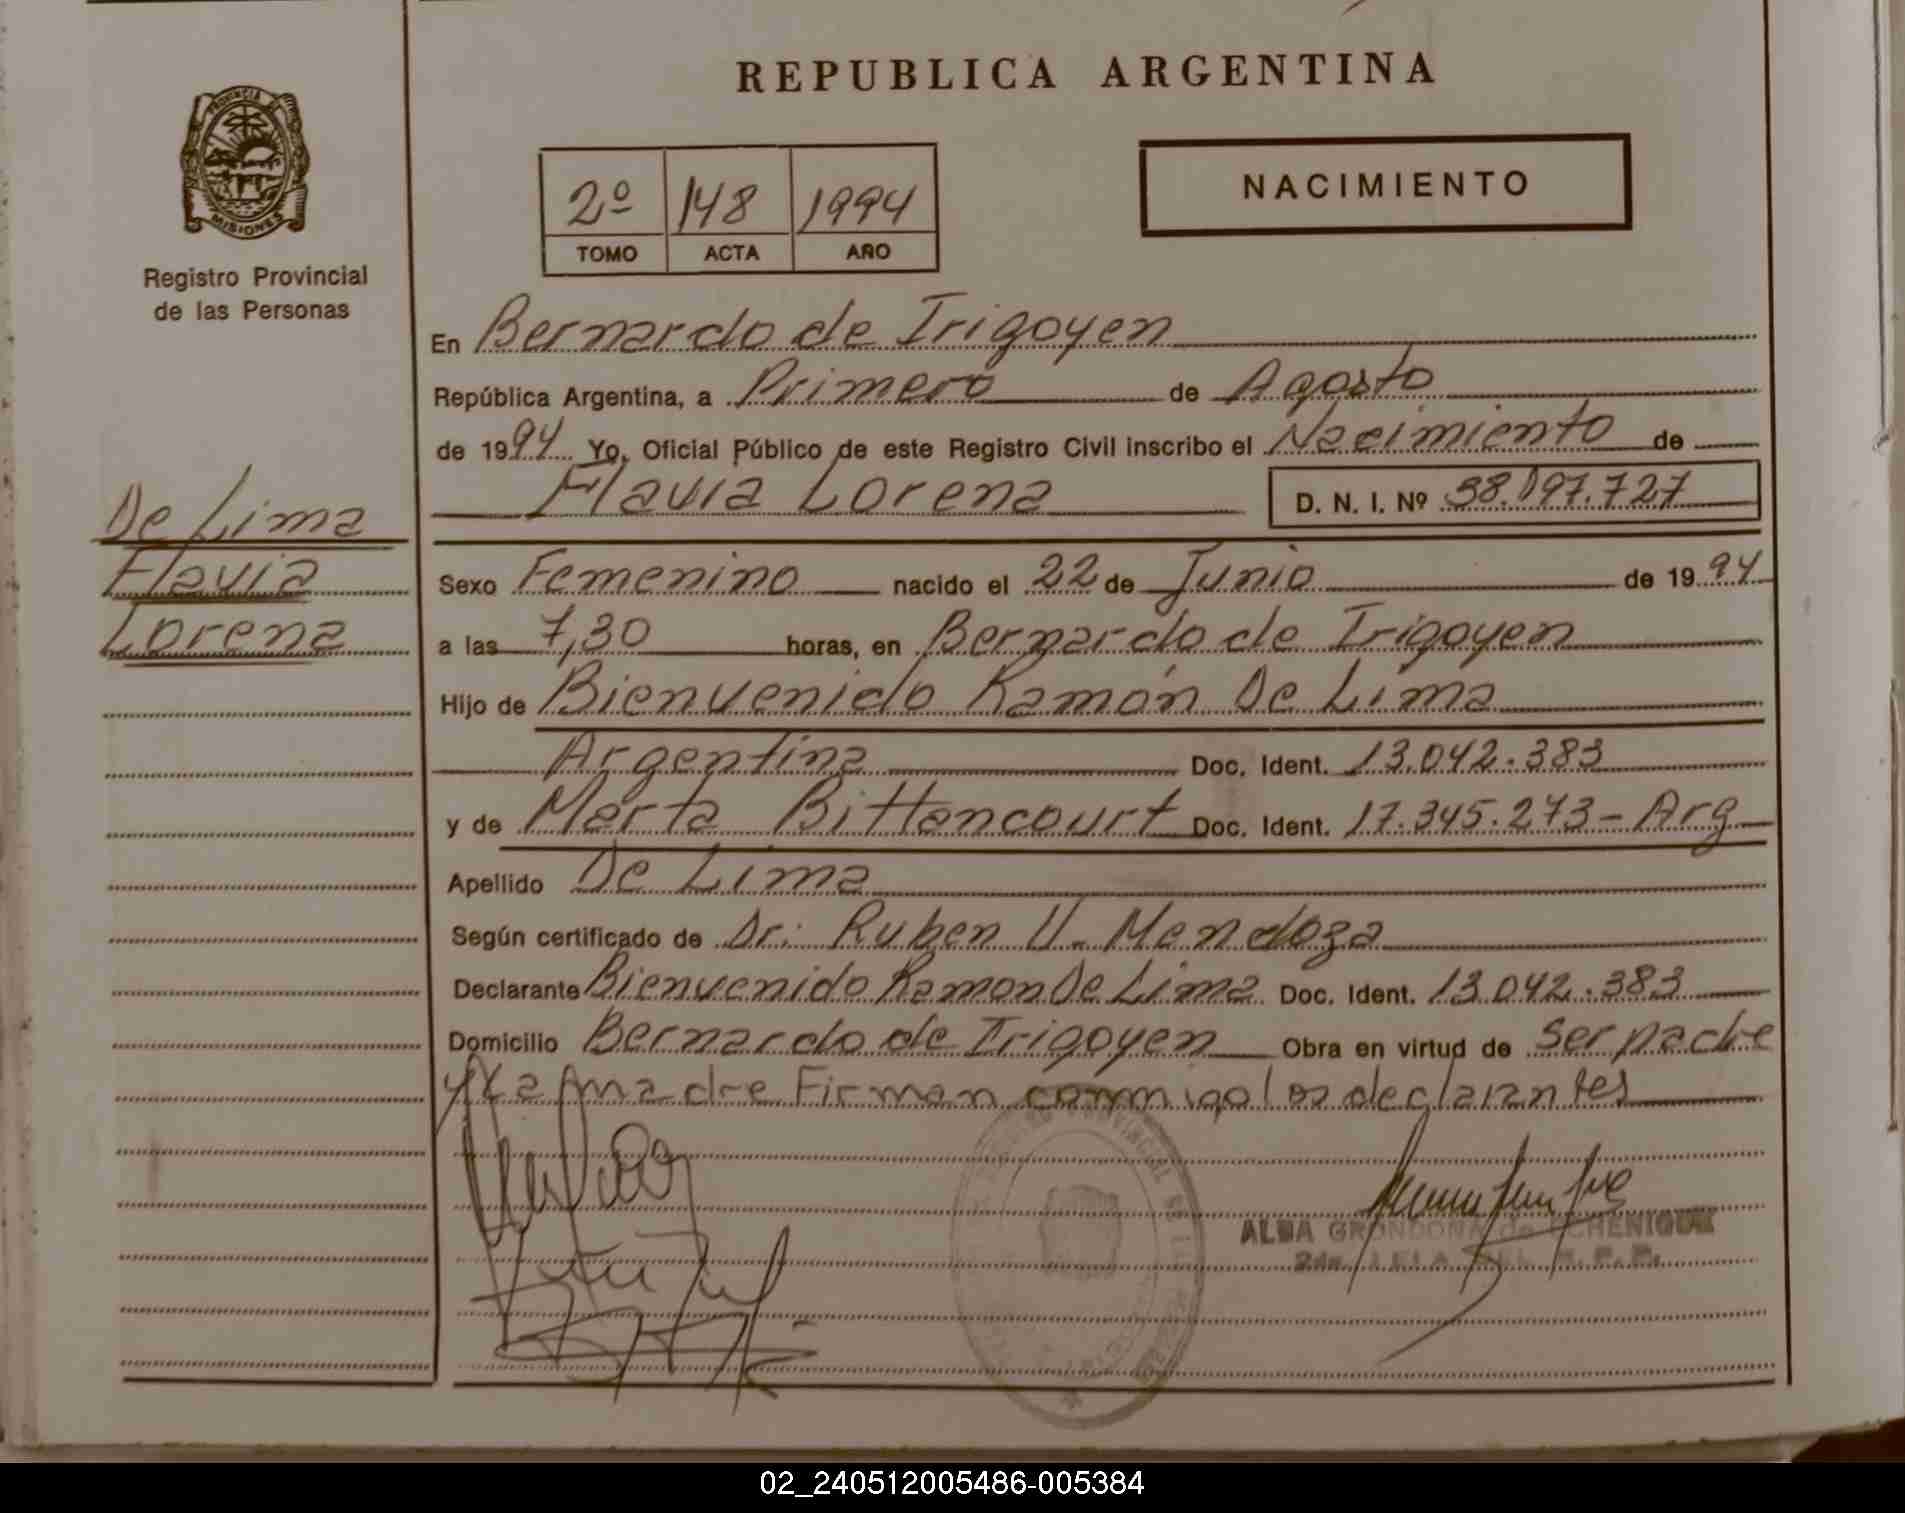 REPUBLICA ARGENTINA
PROVINCIA DE
MISIONES
Registro Provincial
de las Personas
2º 148 1994
TOMO ACTA AÑO
NACIMIENTO
De Lima
Flavia
Lorena
En Bernardo de Irigoyen
República Argentina, a Primero de Agosto
de 1994 Yo, Oficial Público de este Registro Civil inscribo el Nacimiento de
Flavia Lorena D. N. I. Nº 38.097.727
Sexo Femenino nacido el 22 de Junio de 1994
a las 7,30 horas, en Bernardo de Irigoyen
Hijo de Bienvenido Ramón De Lima
Argentina Doc. Ident. 13.042.383
y de Marta Bittencourt Doc. Ident. 17.345.273 - Arg
Apellido De Lima
Según certificado de Dr: Ruben U. Mendoza
Declarante Bienvenido Ramon De Lima Doc. Ident. 13.042.383
Domicilio Bernardo de Irigoyen Obra en virtud de ser padre
y la madre Firman conmigo los declarantes
ALBA GRONDONA de ECHENIQUE
02_240512005486-005384